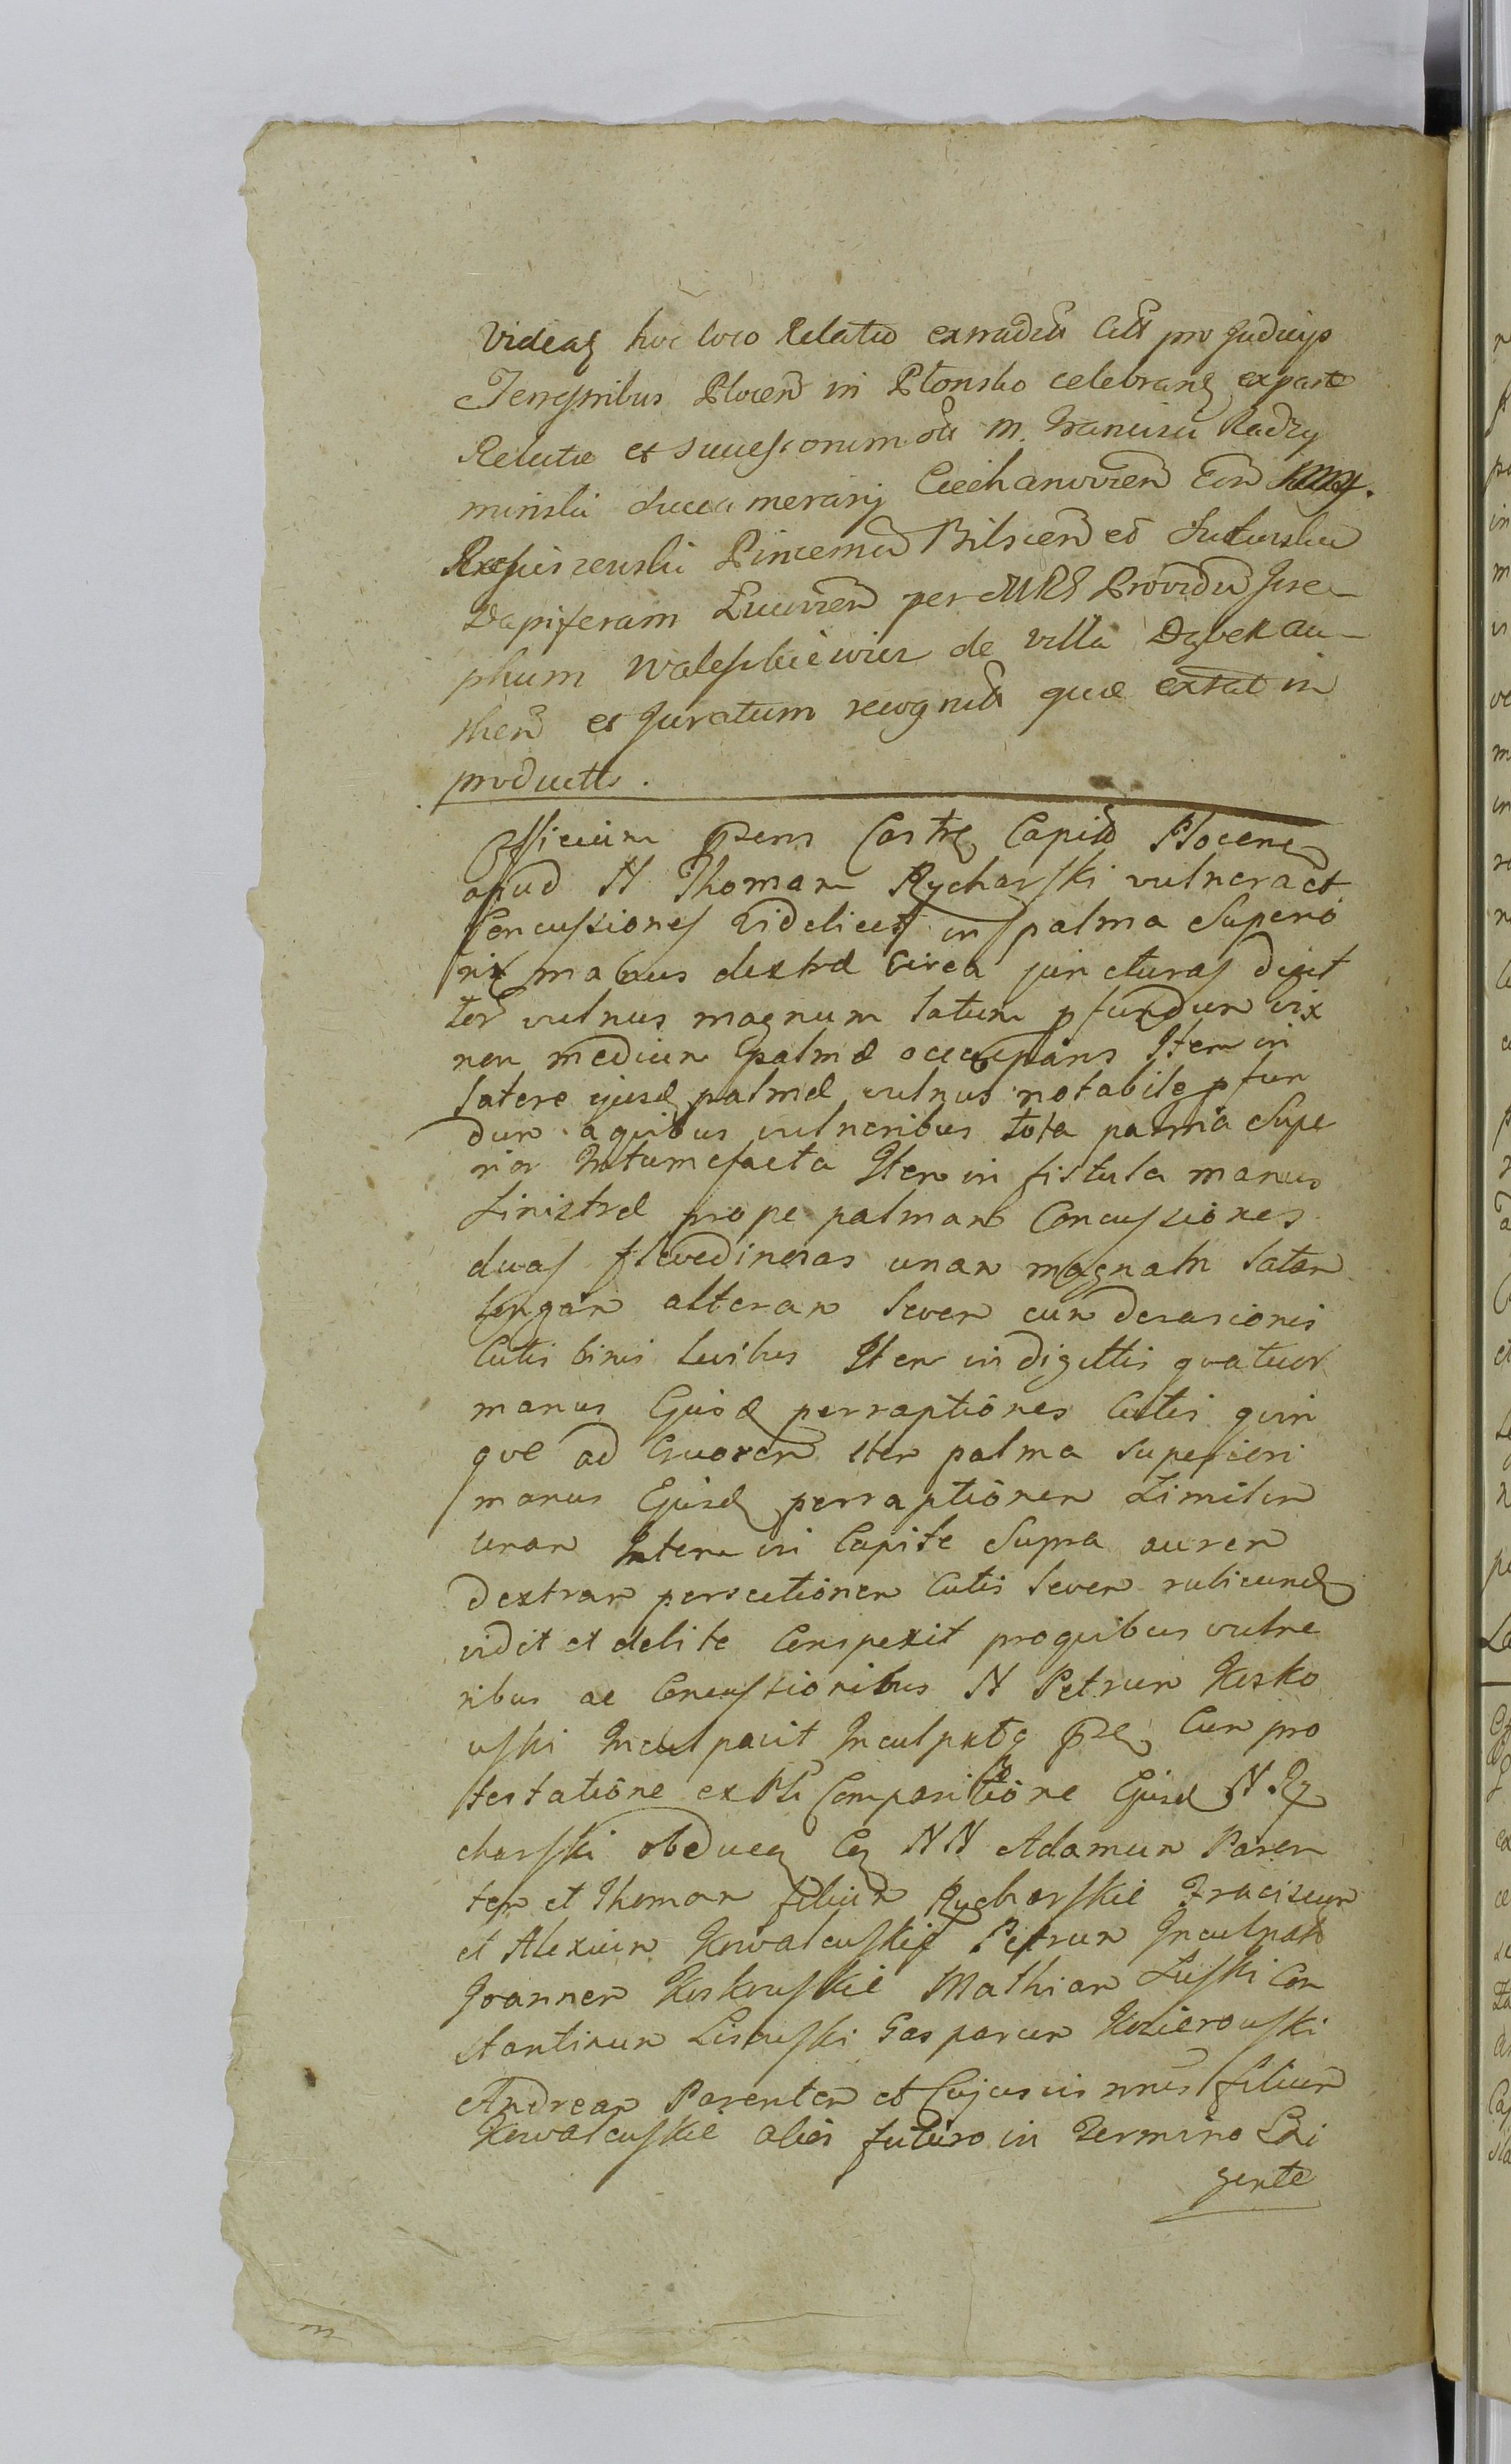 Videatꝫ hoc loco Relatio extradita Citt pro Judicijs
Terrestribus Plocen in Płonsko celebrand ex parte
Relictæ et Successorum olim M. Francisci Radzy
minski Succamerarij Ciechanovien Con
Rzeszewski Pincernam Bilscen et Suturska
Dapiferam Lucovien per MRS Providum Jose
phum Waleskiewicz de villa Dąbek au
then et Juratum recognita quæ extat in
productis.
Officium præsens Castrꝫ Capitale Plocense
apud N Thomam Rycharski vulnera et
Concussiones videlicet in palma Superio
ri manus dextræ circa juncturas digit
ter vulnus magnum latum pfundum vix
non medium palmæ occupans Item in
latere ejusd palmæ vulnus notabile pfun
dum a quibus vulneribus tota palma Supe
rior Intumefacta Item in fistula manus
Sinistræ prope palmam Concussiones
duas flevedinosas unam magnam latam
longam alteram levem cum derasionis
Cutis binis levibus Item in digittis quatuor
manus Ejusd perraptiones Cutis quin
que ad Cruorem Item palma superiori
manus Ejusd perraptionem Similem
unam Item in Capite Supra aurem
dextram persectionem Cutis levem rubicund
vidit et debite Conspexit pro quibus vulne
ribus ac Concussionibus N Petrum Kosko
wski Inculpavit Inculpatq pse Cum pro
testatione ex Compositione Ejusd N Ry
charski obducq Cq NN Adamum Paren
tem et Thomam filium Rycharskie Franciscum
et Alexium Kowalewskie Petrum Inculpat
Joannem Koskowskie Mathiam Luski Con
stantinum Lisowski Gasparum Kozierowski
Andream Parentem et Cujusvis nnis filium
Kowalewskie alios futuro in Termino Exi
gente